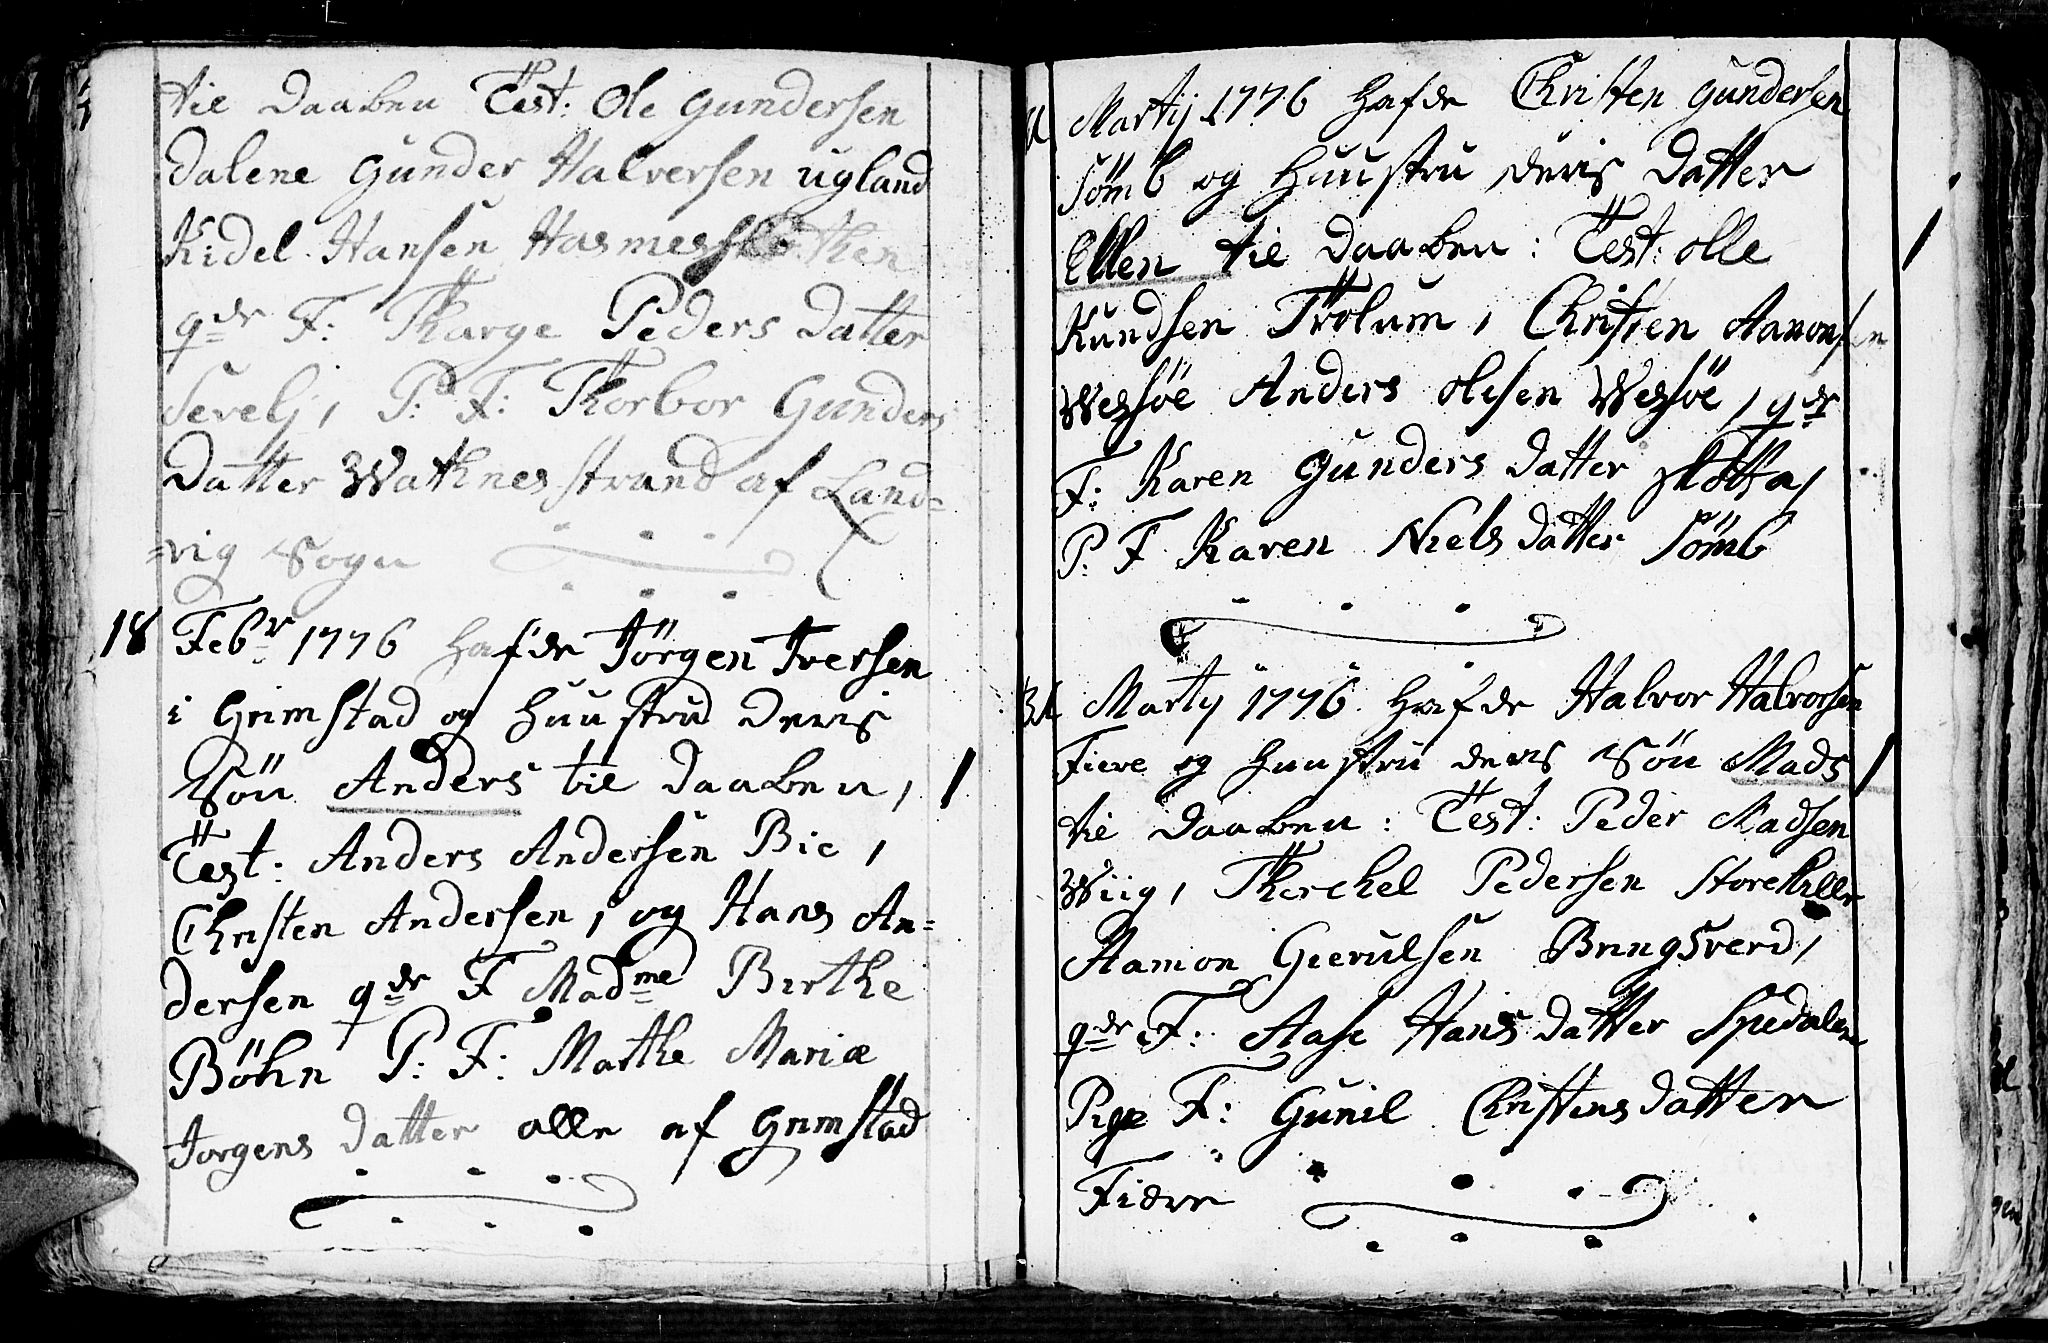 til Daaben Test: Ole Gundersen
Dalene Gunder Halversen Ugland
Kidel Hansen
qdr F: Tharge Peders Datter
Sevelj, P: F: Thorbor Gunders
Datter Wathnes strand af Land=
=vig Sogn
18 Febr 1776 hafde Jörgen Iversen
i Grimstad og Huustru deris
Sön Anders til Daaben, 1
Test: Anders Andersen Bie,
Christen Andersen, og Hans An=
dersen qdr F Madme Birthe
Böhn P: F: Marthe Mariæ
Jorgens Datter alle af Grimstad
Martij 1776 hafde Christen Gundersen
Sömb og Huustru deris Datter
Ellen til Daaben: Test: Olle 1
Kundsen Trölum, Christen Aamonsen
Wessöe Anders Olesen Wessöe, qdr
F: Karen Gunders Datter
P: F Karen Niels Datter Sömb
31 Martij 1776 hafde Halvor Halvorsen
Fiere og Huustru deris Sön Mads 1
til Daaben: Test: Peder Madsen
Wiig, Therchel Pedersen Storekiller
Aamon Gierulsen Bringsverd,
qdr F: Aase Hans Datter Spedalen
Pige F: Gunil Christens Datter
Fiære